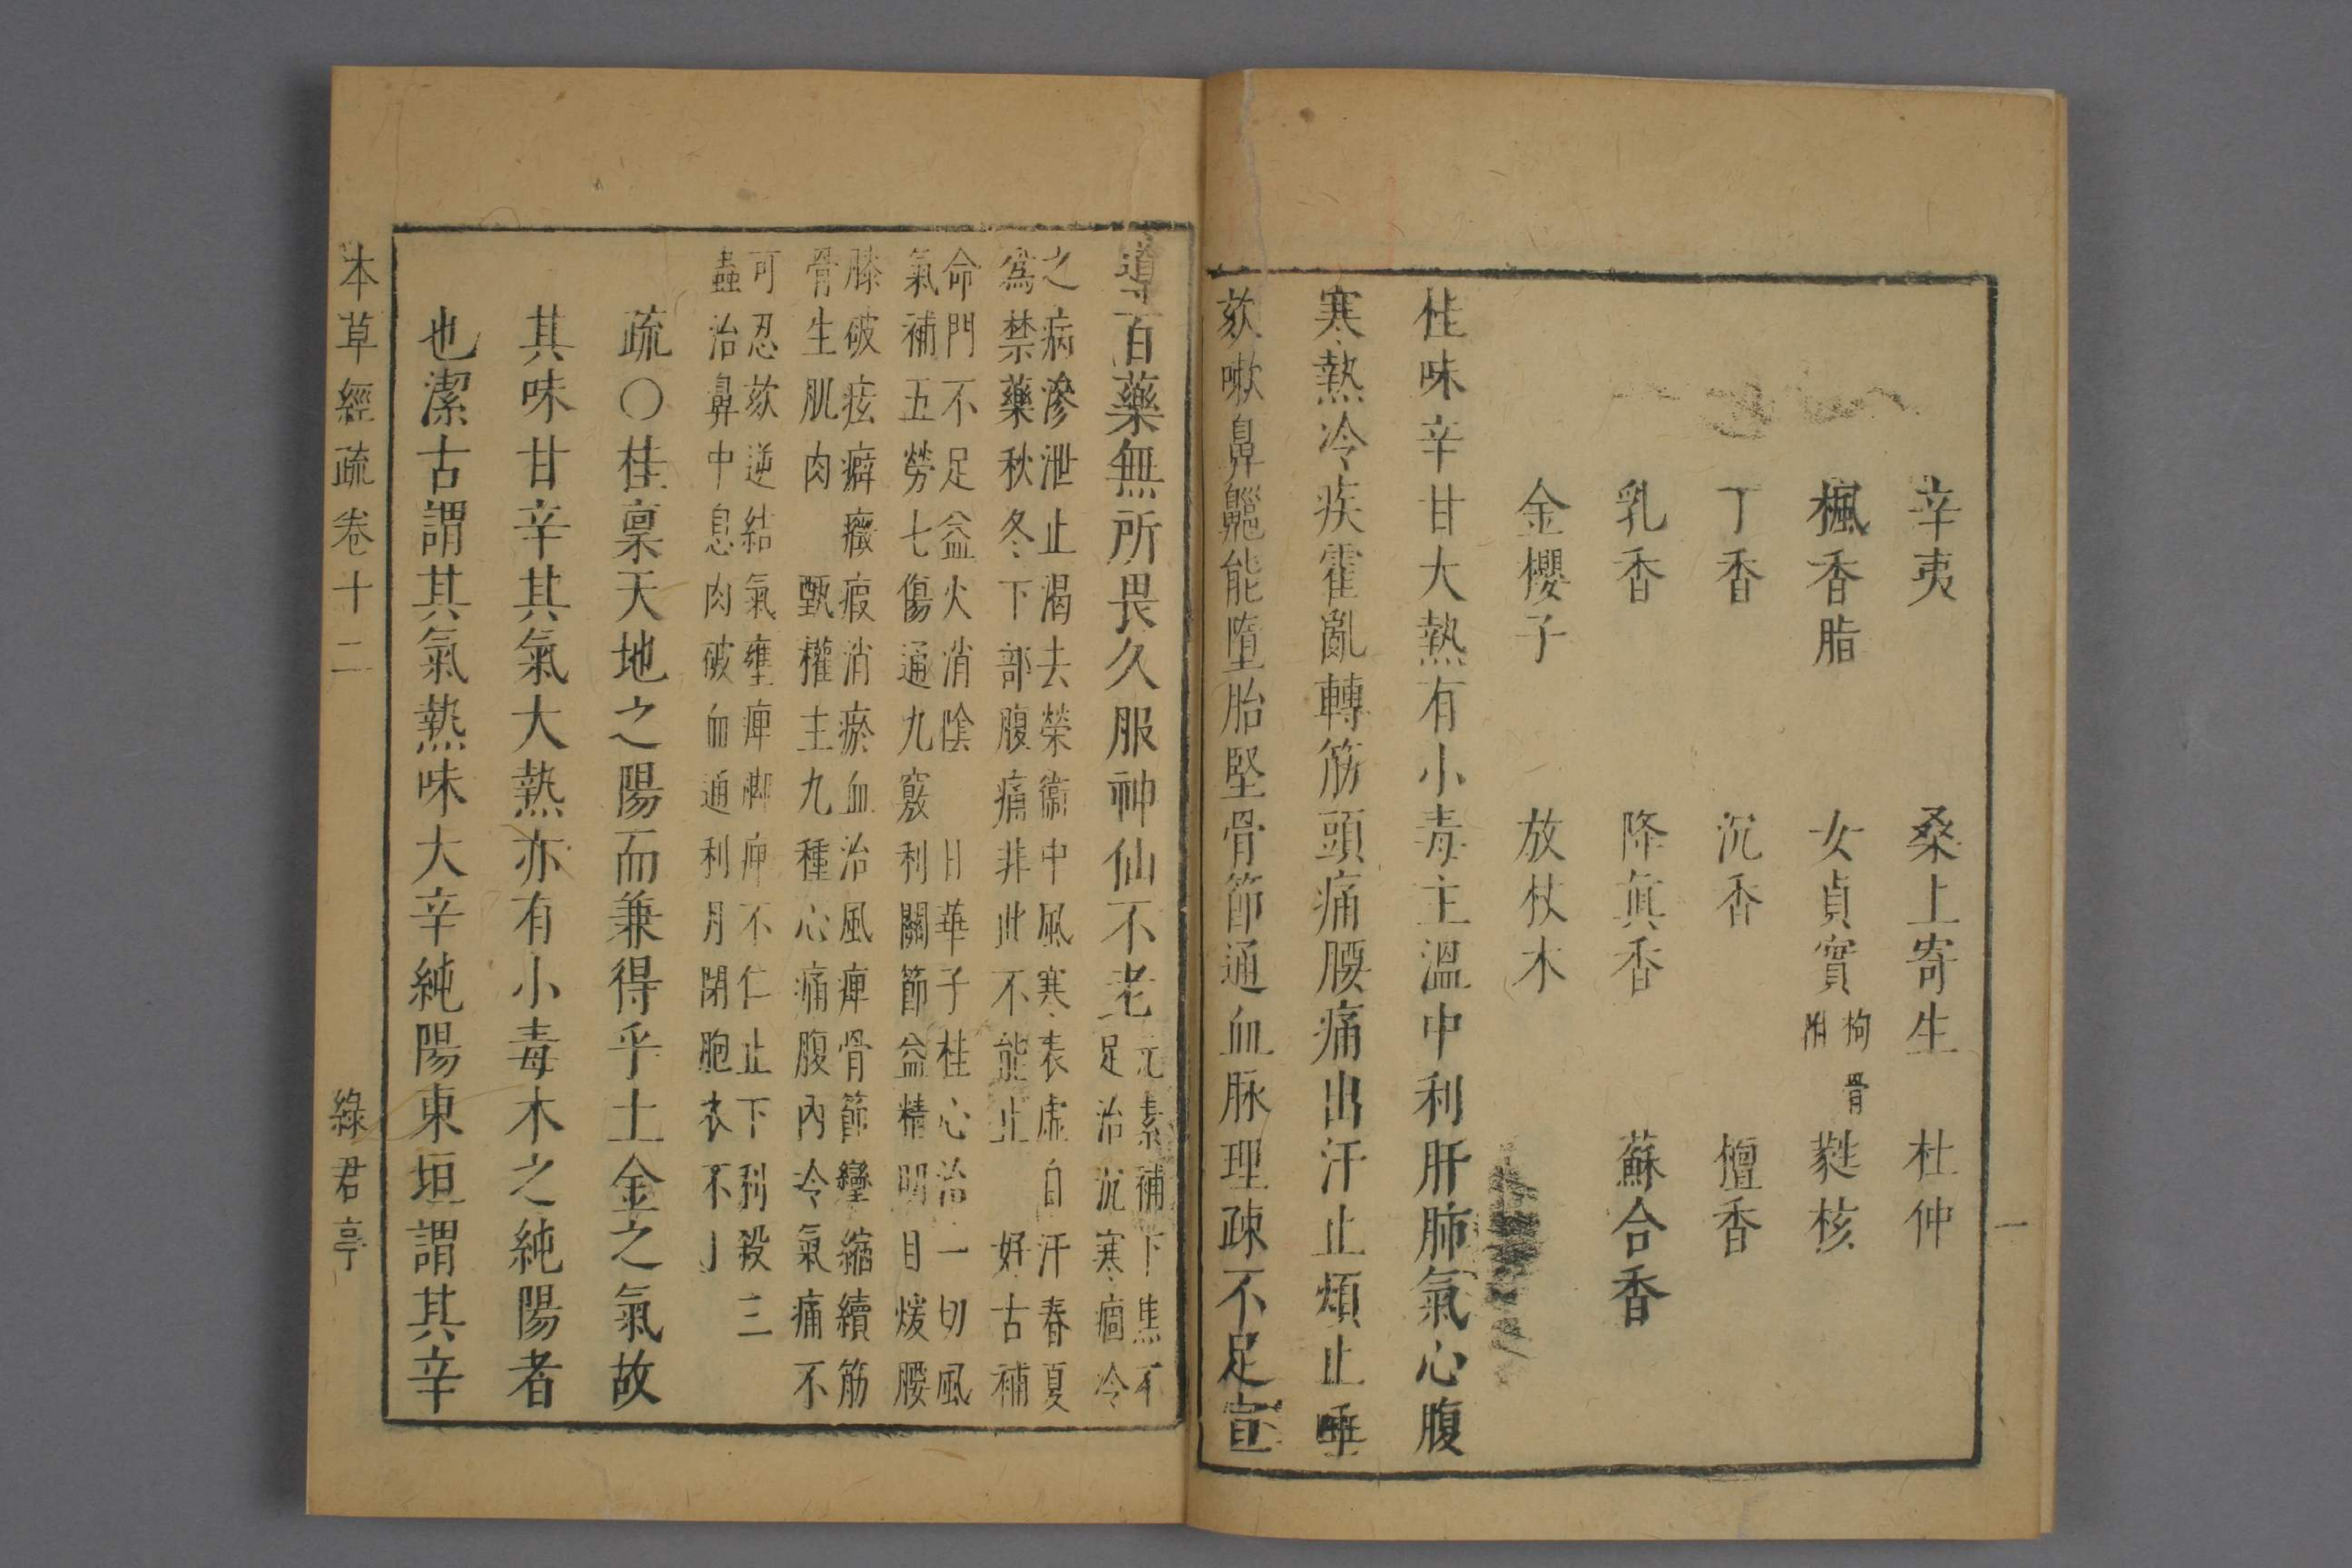 辛夷 桑上寄生 杜仲
楓香脂 女貞實 枸骨附 蕤核
丁香 沉香 檀香
乳香 降眞香 蘇合香
金櫻子 放杖木
桂味辛甘大熱有小毒主溫中利肝肺氣心腹
寒熱冷疾霍亂轉筋頭痛腰痛出汗止煩止唾
欬嗽鼻齆能墮胎堅骨節通血脉理疎不足宣
一
導百藥無所畏久服神仙不老
元素補下焦不
足治沉寒痼冷
之病滲泄止渴去榮衞中風寒表虛自汗春夏
爲禁藥秋冬下部腹痛非此不能止 好古補
命門不足益火消陰 日華子桂心治一切風
氣補五勞七傷通九竅利關節益精明目煖腰
膝破痃癖癥瘕消瘀血治風痺骨節攣縮續筋
骨生肌肉 甄權主九種心痛腹內冷氣痛不
可忍欬逆結氣壅痺脚痺不仁止下利殺三
蟲治鼻中息肉破血通利月閉胞衣不
疏〇桂稟天地之陽而兼得乎土金之氣故
其味甘辛其氣大熱亦有小毒木之純陽者
也潔古謂其氣熱味大辛純陽東垣謂其辛
本草經疏卷十二 綠君亭